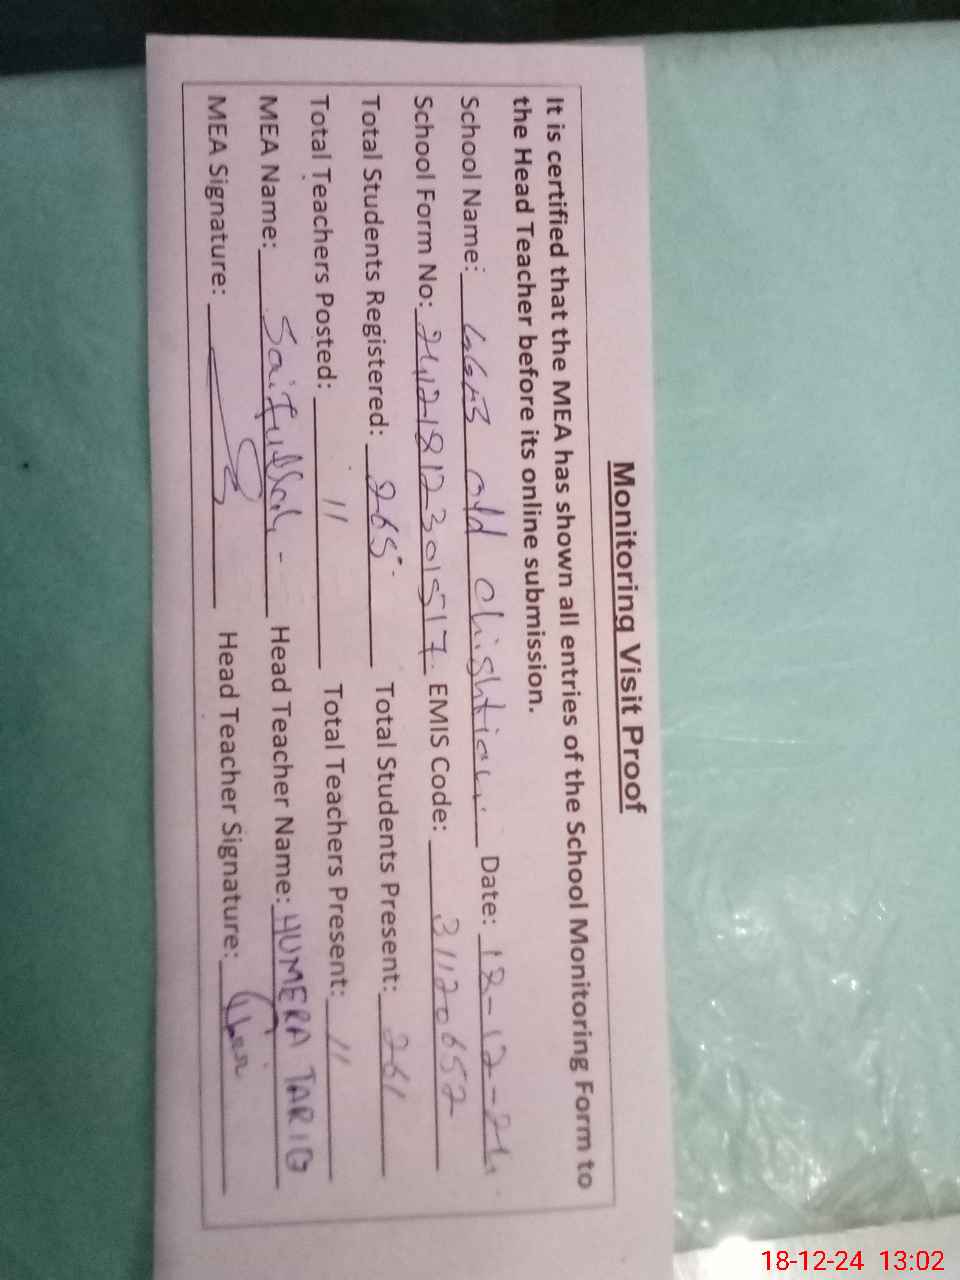 Monitoring Visit Proof
It is certified that the MEA has shown all entries of the School Monitoring Form to
the Head Teacher before its online submission.
School Name: old chishtian Date: 18-12-24
School Form No: 24121812301517 EMIS Code: 31120652
Total Students Registered: 265 Total Students Present: 261
Total Teachers Posted: 11 Total Teachers Present: 11
MEA Name: Saifullah Head Teacher Name: HUMERA TARIQ
MEA Signature: Head Teacher Signature:
18-12-24 13:02